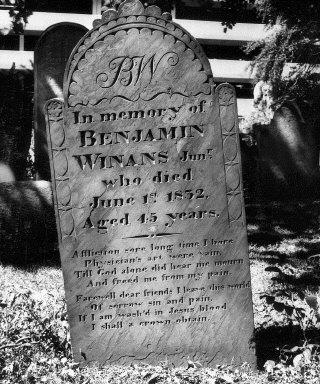 BW
In memory of
BENJAMIN
WINANS Junr.
who died
June 1st 1832.
Aged 45 years.
Affliction sore long time I bore
Physician's art were vain,
Till God alone did hear me mourn
And freed me from my pain.
Farewell dear friends I leave this world
Of sorrow sin and pain,
If I am wash'd in Jesus blood
I shall a crown obtain.